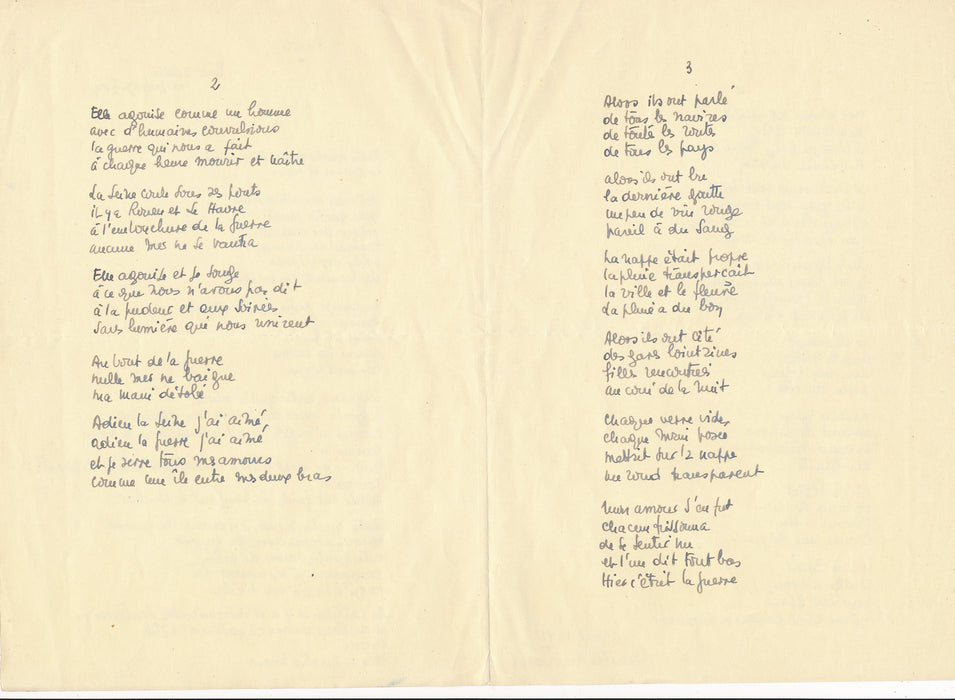 2
Elle agonise comme un homme
avec d'humaines convulsions
la guerre qui nous a fait
à chaque heure mourir et naître
La Seine coule sous ses ponts
il y a Rouen et Le Havre
à l'embouchure de la guerre
aucune mer ne se vantra
Elle agonise et je songe
à ce que nous n'avons pas dit
à la pudeur et aux soirées
sans lumière qui nous unirent
Au bout de la guerre
nulle mer ne baigne
ma main
Adieu la Seine j'ai aimé,
adieu la guerre j'ai aimé
et je serre tous mes amours
comme une île entre mes deux bras
3
Alors ils ont parlé
de tous les navires
de toute les routes
de tous les pays
alors ils ont bu
la dernière goutte
un peu de vin rouge
pareil à du sang
La nappe était propre
la pluie transperçait
la ville et le fleuve
La pluie a du bon
Alors ils ont cité
des gares lointaines
filles rencontrées
au coin de la nuit
Chaque verre vide,
chaque main posée
mettait sur la nappe
un rond transparent
Mon amour s'en fut
chacun frissonna
de se sentir nu
et l'un dit tout bas
Hier c'était la guerre